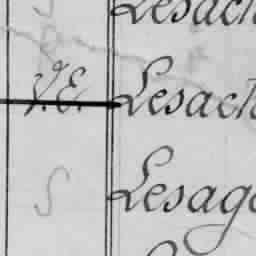 Lesach
V.E. Lesach
S Lesage